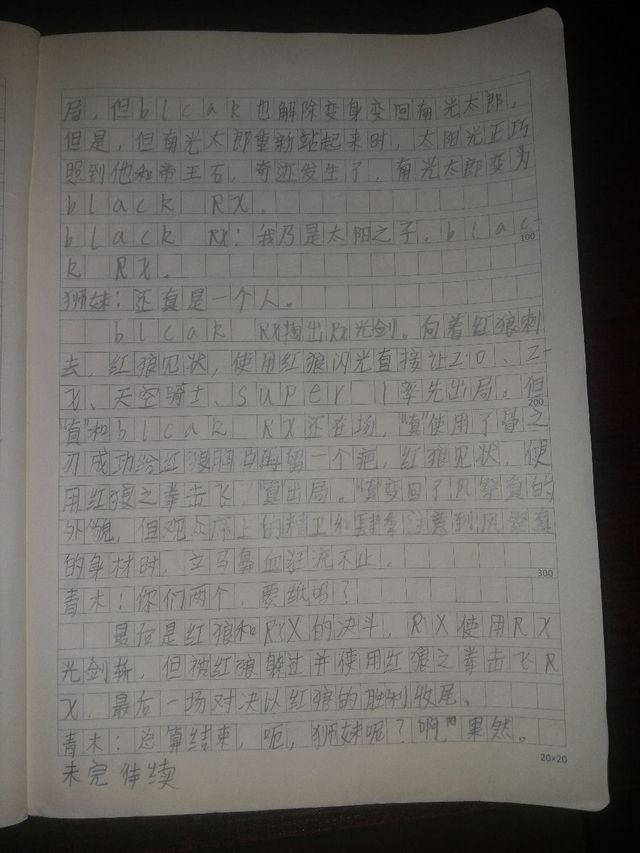 局，但blcak也解除变身变回南光太郎。
但是，但南光太郎重新站起来时，太阳光正巧
照到他和帝王石，奇迹发生了，南光太郎变为
black RX。
black RX：我乃是太阳之子，blac-
100
k RX。
狮妹：还真是一个人。
blcak RX掏出RX光剑。向着红狼刺
去，红狼见状，使用红狼闪光直接让ZO、Z-
X、天空骑士、super 1率先出局。但
200
"真"和blcak RX还在场，"真"使用了骨之
刃成功给红狼胸口留一个疤，红狼见状，使
用红狼之拳击飞，"真"出局。"真"变回了风祭真的
外貌，但观众席上的精卫和肆季注意到风祭真
的身材时，立马鼻血狂流不止。
300
青木：你们两个，要纸吗？
最后是红狼和RX的决斗，RX使用RX
光剑斩，但被红狼躲过并使用红狼之拳击飞R
X，最后一场对决以红狼的胜利收尾。
青木：总算结束，呃，狮妹呢？啊，果然。
20×20
未完待续